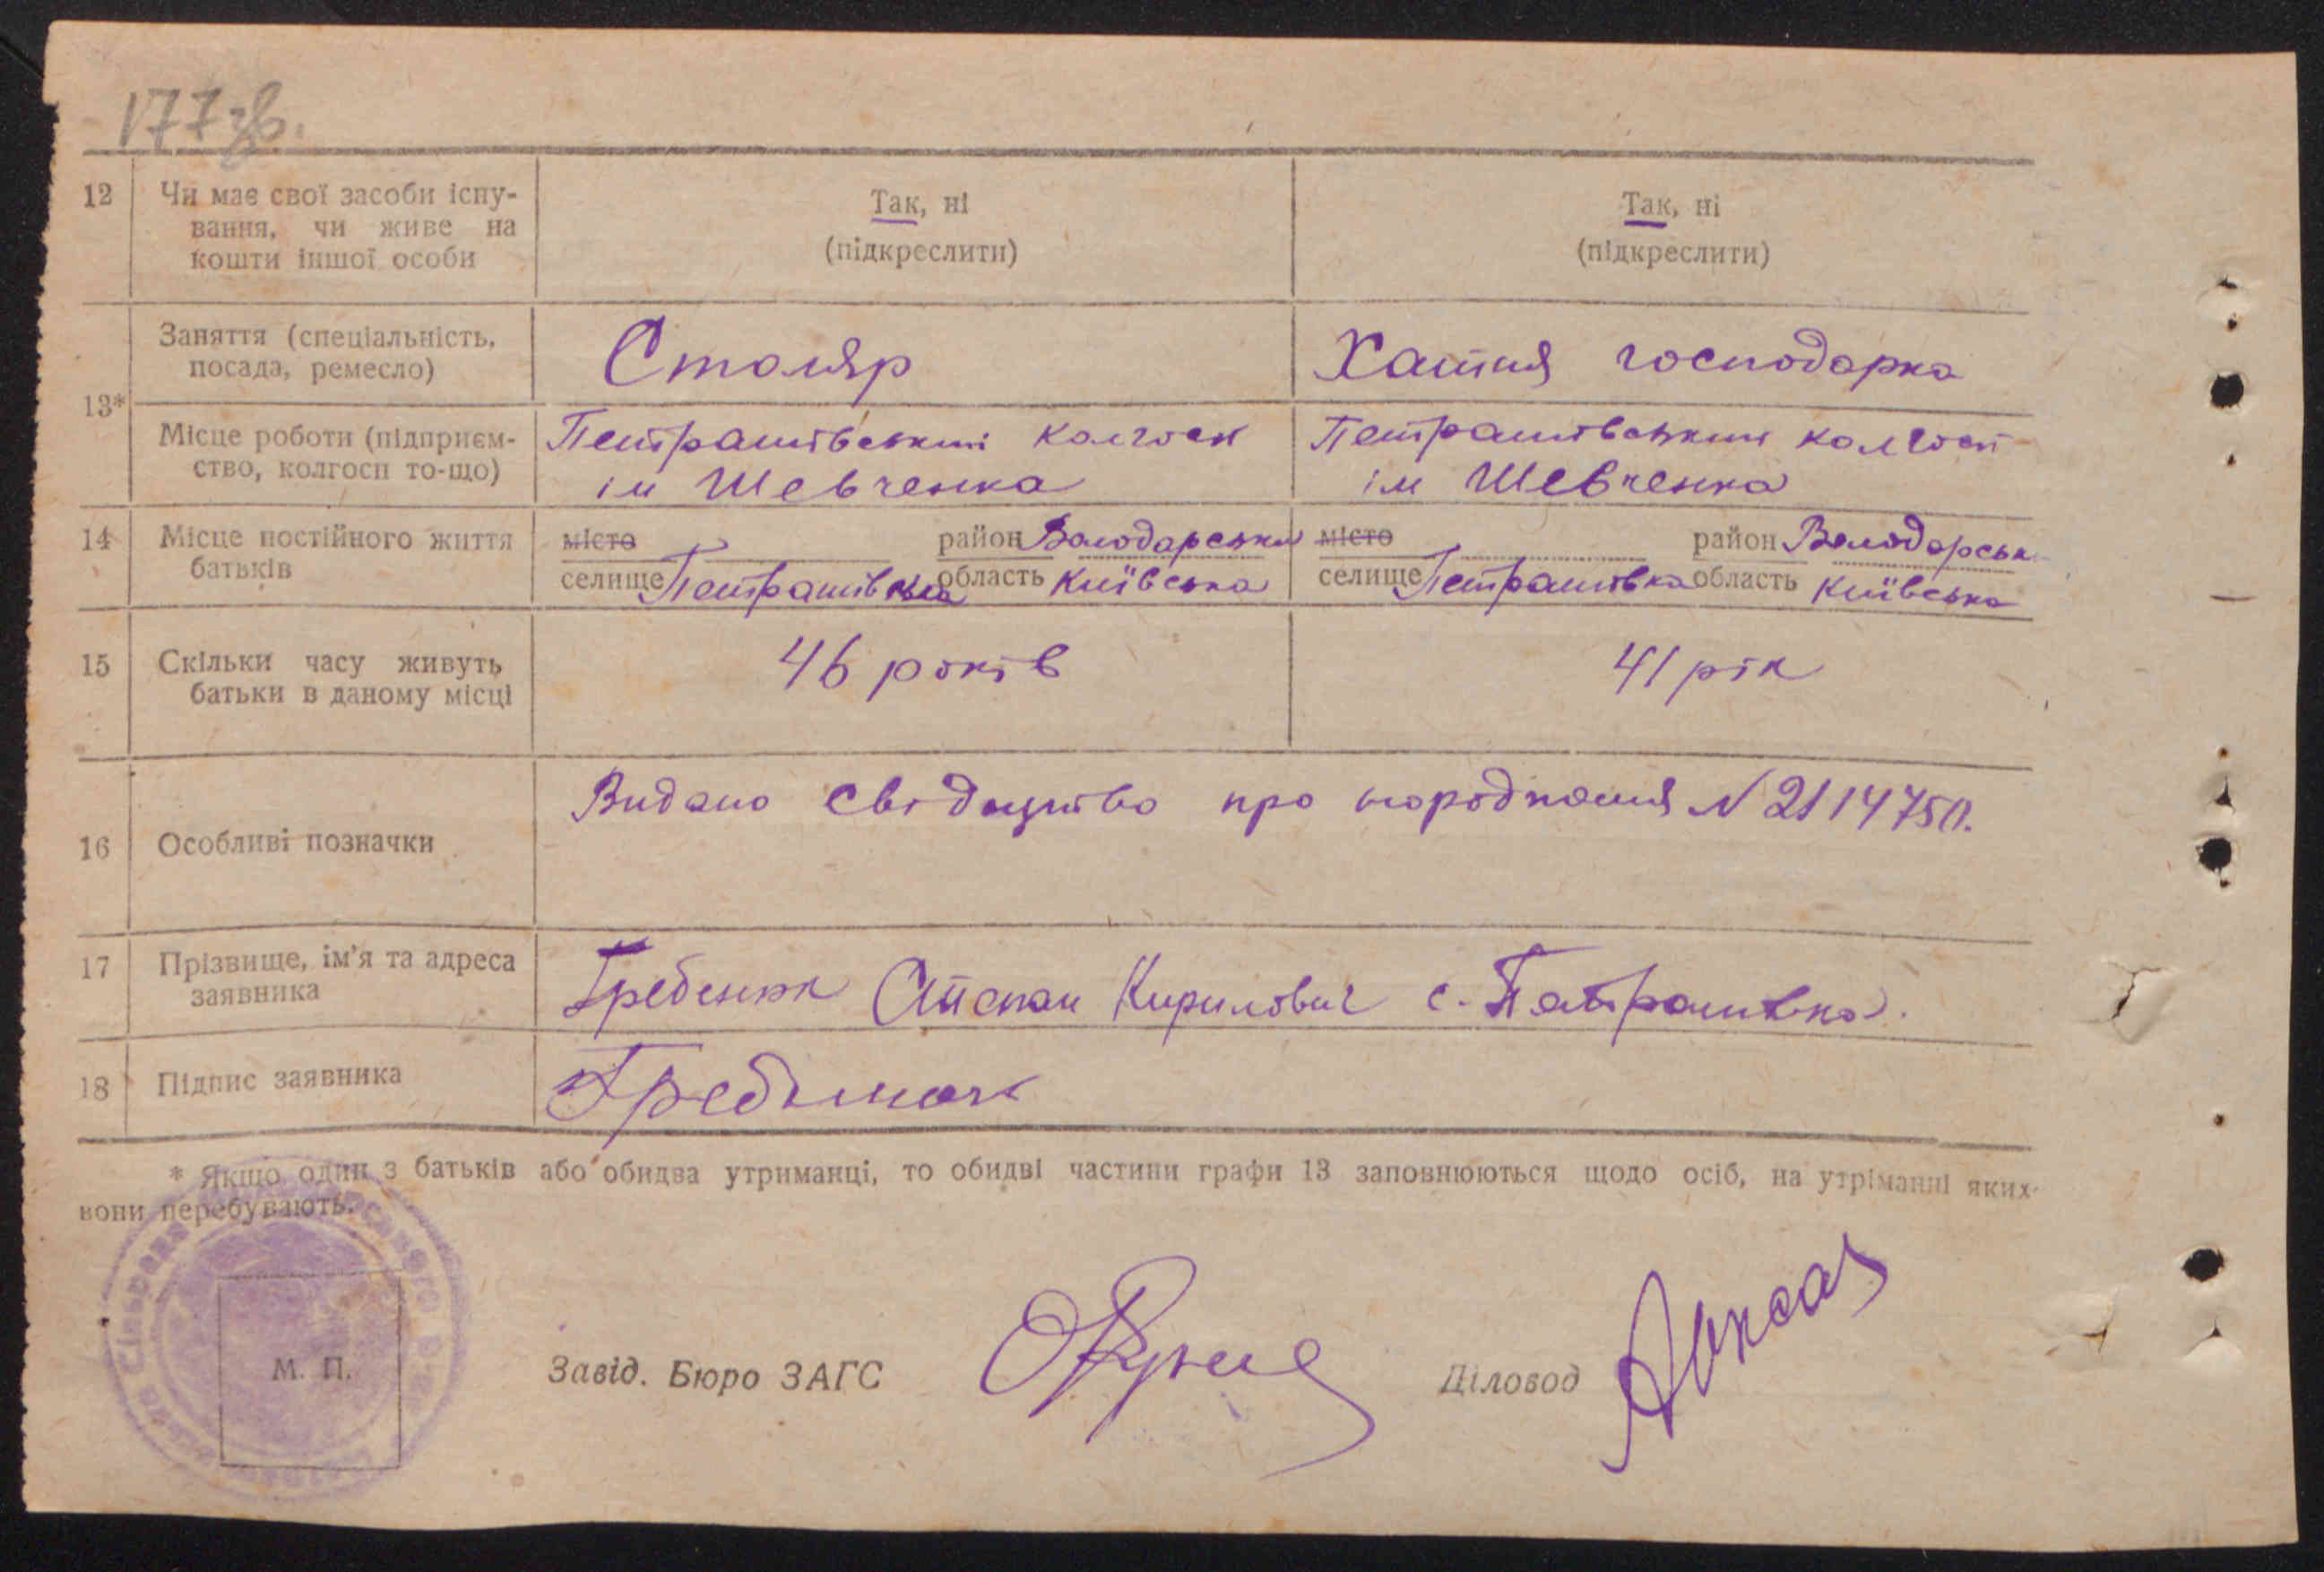 177 зв.
12 Чи має свої засоби існу- Так, ні Так, ні
вання, чи живе на
кошти іншої особи (підкреслити) (підкреслити)
Заняття (спеціальність, Столяр Хатня господарка
посада, ремесло)
13*
Місце роботи (підприєм- Петрашівський колгосп Петрашівський колгосп
ство, колгосп то-що) ім Шевченка ім Шевченка
14 Місце постійного життя місто район Володарськи місто район Володарськ
батьків селище Петрашівка область Київська селище Петрашівка область Київська
15 Скільки часу живуть 46 років 41 рік
батьки в даному місці
Видано свідоцтво про народження N 2114750.
16 Особливі позначки
17 Прізвище, ім'я та адреса Гребенюк Степан Кирилович с. Петрашівка.
заявника
18 Підпис заявника
* Якщо один з батьків або обидва утриманці, то обидві частини графи 13 заповнюються щодо осіб, на утріманні яких
вони перебувають.
М. П.
Завід. Бюро ЗАГС Діловод